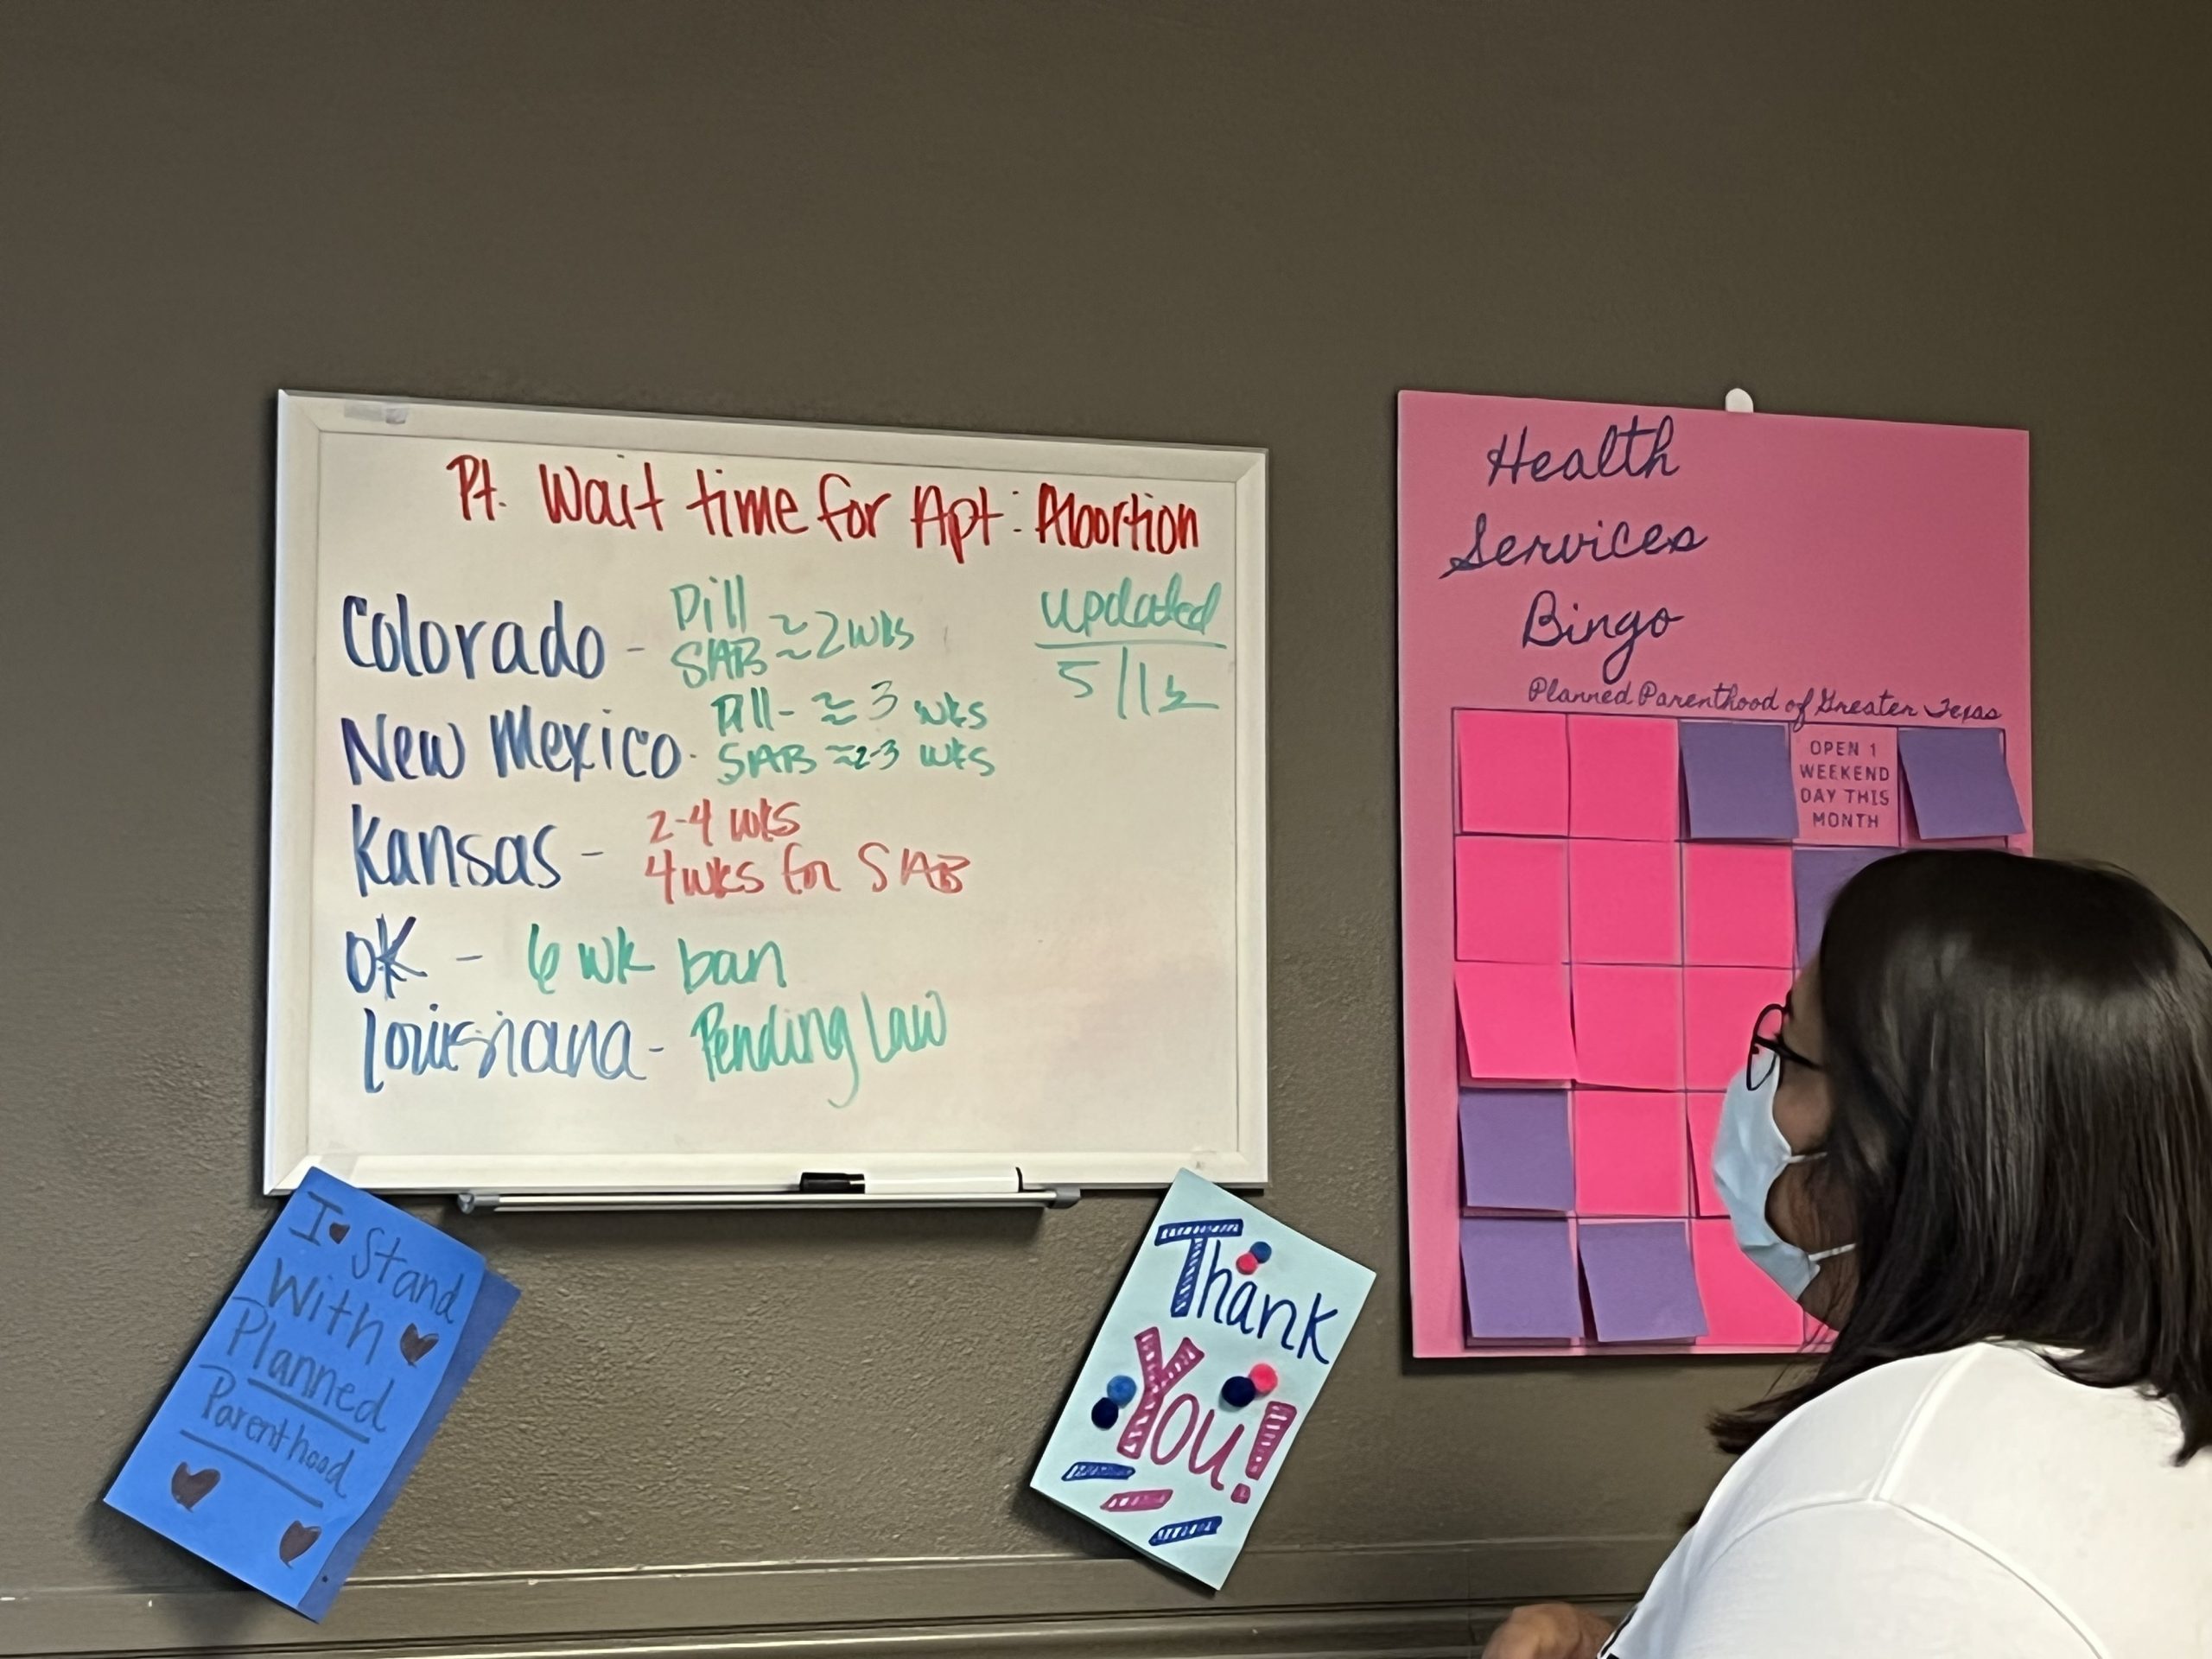 Pt. Wait time for Apt: Abortion
updated
Colorado - Pill ~ 2 wks
SAB ~
New Mexico - Pill - ≈ 3 wks
SAB ≈ 2-3 wks
Kansas - 2-4 wks
4 wks for SAB
OK - 6 wk ban
Louisiana - Pending Law
I Stand
With
Planned
Parenthood
Thank
You!
Health
Services
Bingo
Planned Parenthood of Greater Texas
OPEN 1
WEEKEND
DAY THIS
MONTH